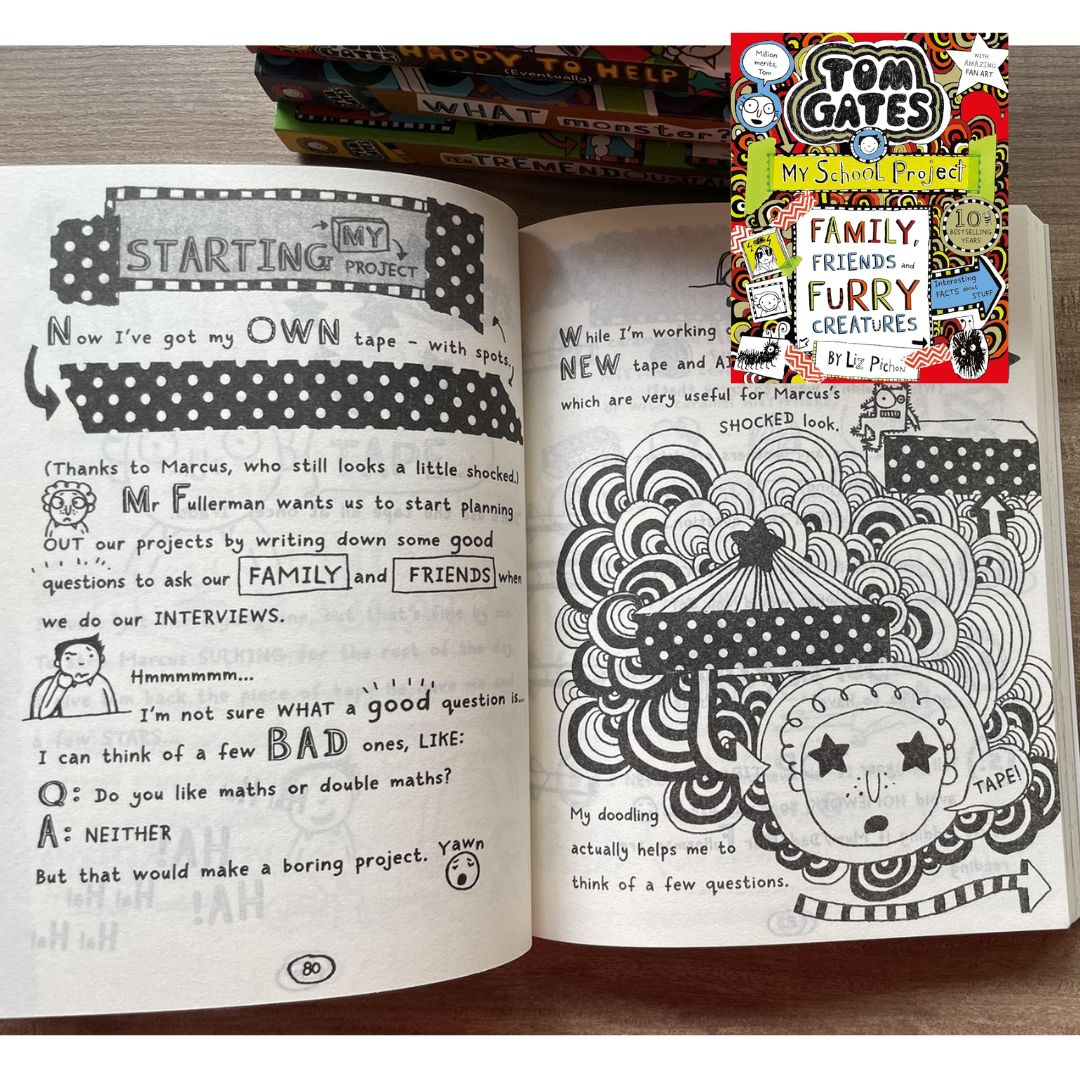 GATES HAPPY TO HELP
(Eventually)
WHAT monster?
TEN TREMENDOUS TALES
Million
merits,
Tom
WITH
AMAZING
FAN ART
TOM
GATES
My School Project
10
BESTSELLING
YEARS
FAMILY,
FRIENDS and
FURRY
CREATURES
Interesting
FACTS about
STUFF
BY Liz Pichon
STARTING MY
PROJECT
Now I've got my OWN tape – with spots.
(Thanks to Marcus, who still looks a little shocked.)
Mr Fullerman wants us to start planning
OUT our projects by writing down some good
questions to ask our FAMILY and FRIENDS when
we do our INTERVIEWS.
Hmmmmmm...
I'm not sure WHAT a good question is...
I can think of a few BAD ones, LIKE:
Q: Do you like maths or double maths?
A: NEITHER
But that would make a boring project. Yawn
80
While I'm working
NEW tape and
which are very useful for Marcus's
SHOCKED look.
TAPE!
My doodling
actually helps me to
think of a few questions.